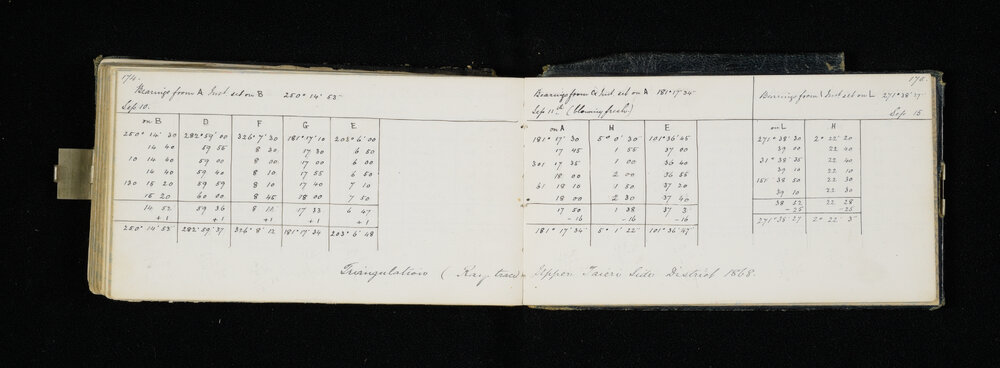 174.
Bearings from A Inst. set on B 250° 14' 53"
Sep 10.
on B D F G E
250° 14' 30 282° 59' 00 326° 7' 30 181° 17' 10 203° 6' 00
14 40 59 55 8 30 17 30 6 50
10 14 40 59 00 8 00 17 00 6 00
14 40 59 40 8 10 17 55 6 50
130 15 20 59 59 8 10 17 40 7 10
15 20 60 00 8 45 18 00 7 50
14 52 59 36 8 12 17 33 6 47
+1 +1 +1 +1 +1
250° 14' 53" 282° 59' 37 326° 8' 12 181° 17' 34 203° 6' 48
175.
Bearings from G Inst set on A 181° 17' 34"
Sep 11th (blowing fresh)
on A H E
181° 17' 30 5° 0' 30" 101° 36' 45
17 45 1 55 37 00
301 17 35 1 00 36 40
18 00 2 00 36 55
61 18 10 1 50 37 20
18 00 2 30 37 40
17 50 1 38 37 3
-16 -16 -16
181° 17' 34" 5° 1' 22" 101° 36' 47"
Bearings from Inst set on L 271° 38' 27"
Sep 15
on L H
271° 38' 30 2° 22' 20
39 00 22 40
31° 38' 35 22 40
39 10 22 10
151 38 50 22 30
39 10 22 30
38 52 22 28
-25 -25
271° 38' 27 2° 22' 3"
Triangulation ( Ray trace Upper Taieri Side District 1868.